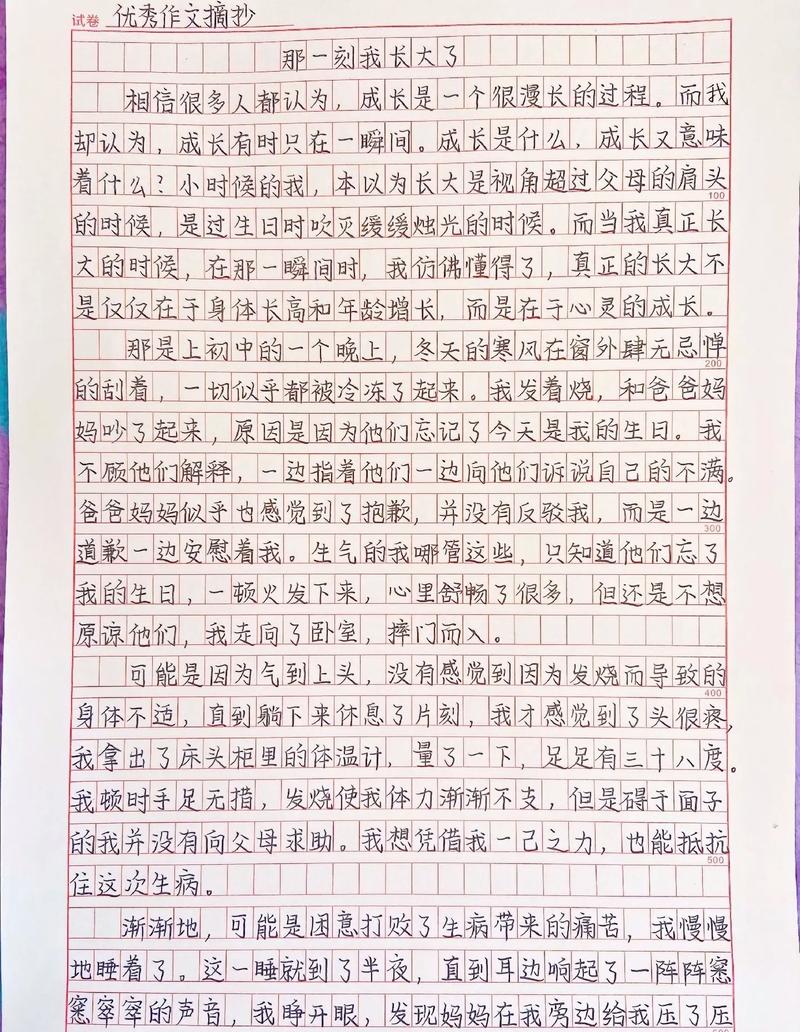 试卷 优秀作文摘抄
那一刻我长大了
相信很多人都认为，成长是一个很漫长的过程。而我
却认为，成长有时只在一瞬间。成长是什么，成长又意味
着什么？小时候的我，本以为长大是视角超过父母的肩头
100
的时候，是过生日时吹灭缓缓烛光的时候。而当我真正长
大的时候，在那一瞬间时，我仿佛懂得了，真正的长大不
是仅仅在于身体长高和年龄增长，而是在于心灵的成长。
那是上初中的一个晚上，冬天的寒风在窗外肆无忌惮
200
的刮着，一切似乎都被冷冻了起来。我发着烧，和爸爸妈
妈吵了起来，原因是因为他们忘记了今天是我的生日。我
不顾他们解释，一边指着他们一边向他们诉说自己的不满。
爸爸妈妈似乎也感觉到了抱歉，并没有反驳我，而是一边
300
道歉一边安慰着我。生气的我哪管这些，只知道他们忘了
我的生日，一顿火发下来，心里舒畅了很多，但还是不想
原谅他们，我走向了卧室，摔门而入。
可能是因为气到上头，没有感觉到因为发烧而导致的
400
身体不适，直到躺下来休息了片刻，我才感觉到了头很疼，
我拿出了床头柜里的体温计，量了一下，足足有三十八度。
我顿时手足无措，发烧使我体力渐渐不支，但是碍于面子
的我并没有向父母求助。我想凭借我一己之力，也能抵抗
500
住这次生病。
渐渐地，可能是困意打败了生病带来的痛苦，我慢慢
地睡着了。这一睡就到了半夜，直到耳边响起了一阵阵窸
窸窣窣的声音，我睁开眼，发现妈妈在我旁边给我压了压